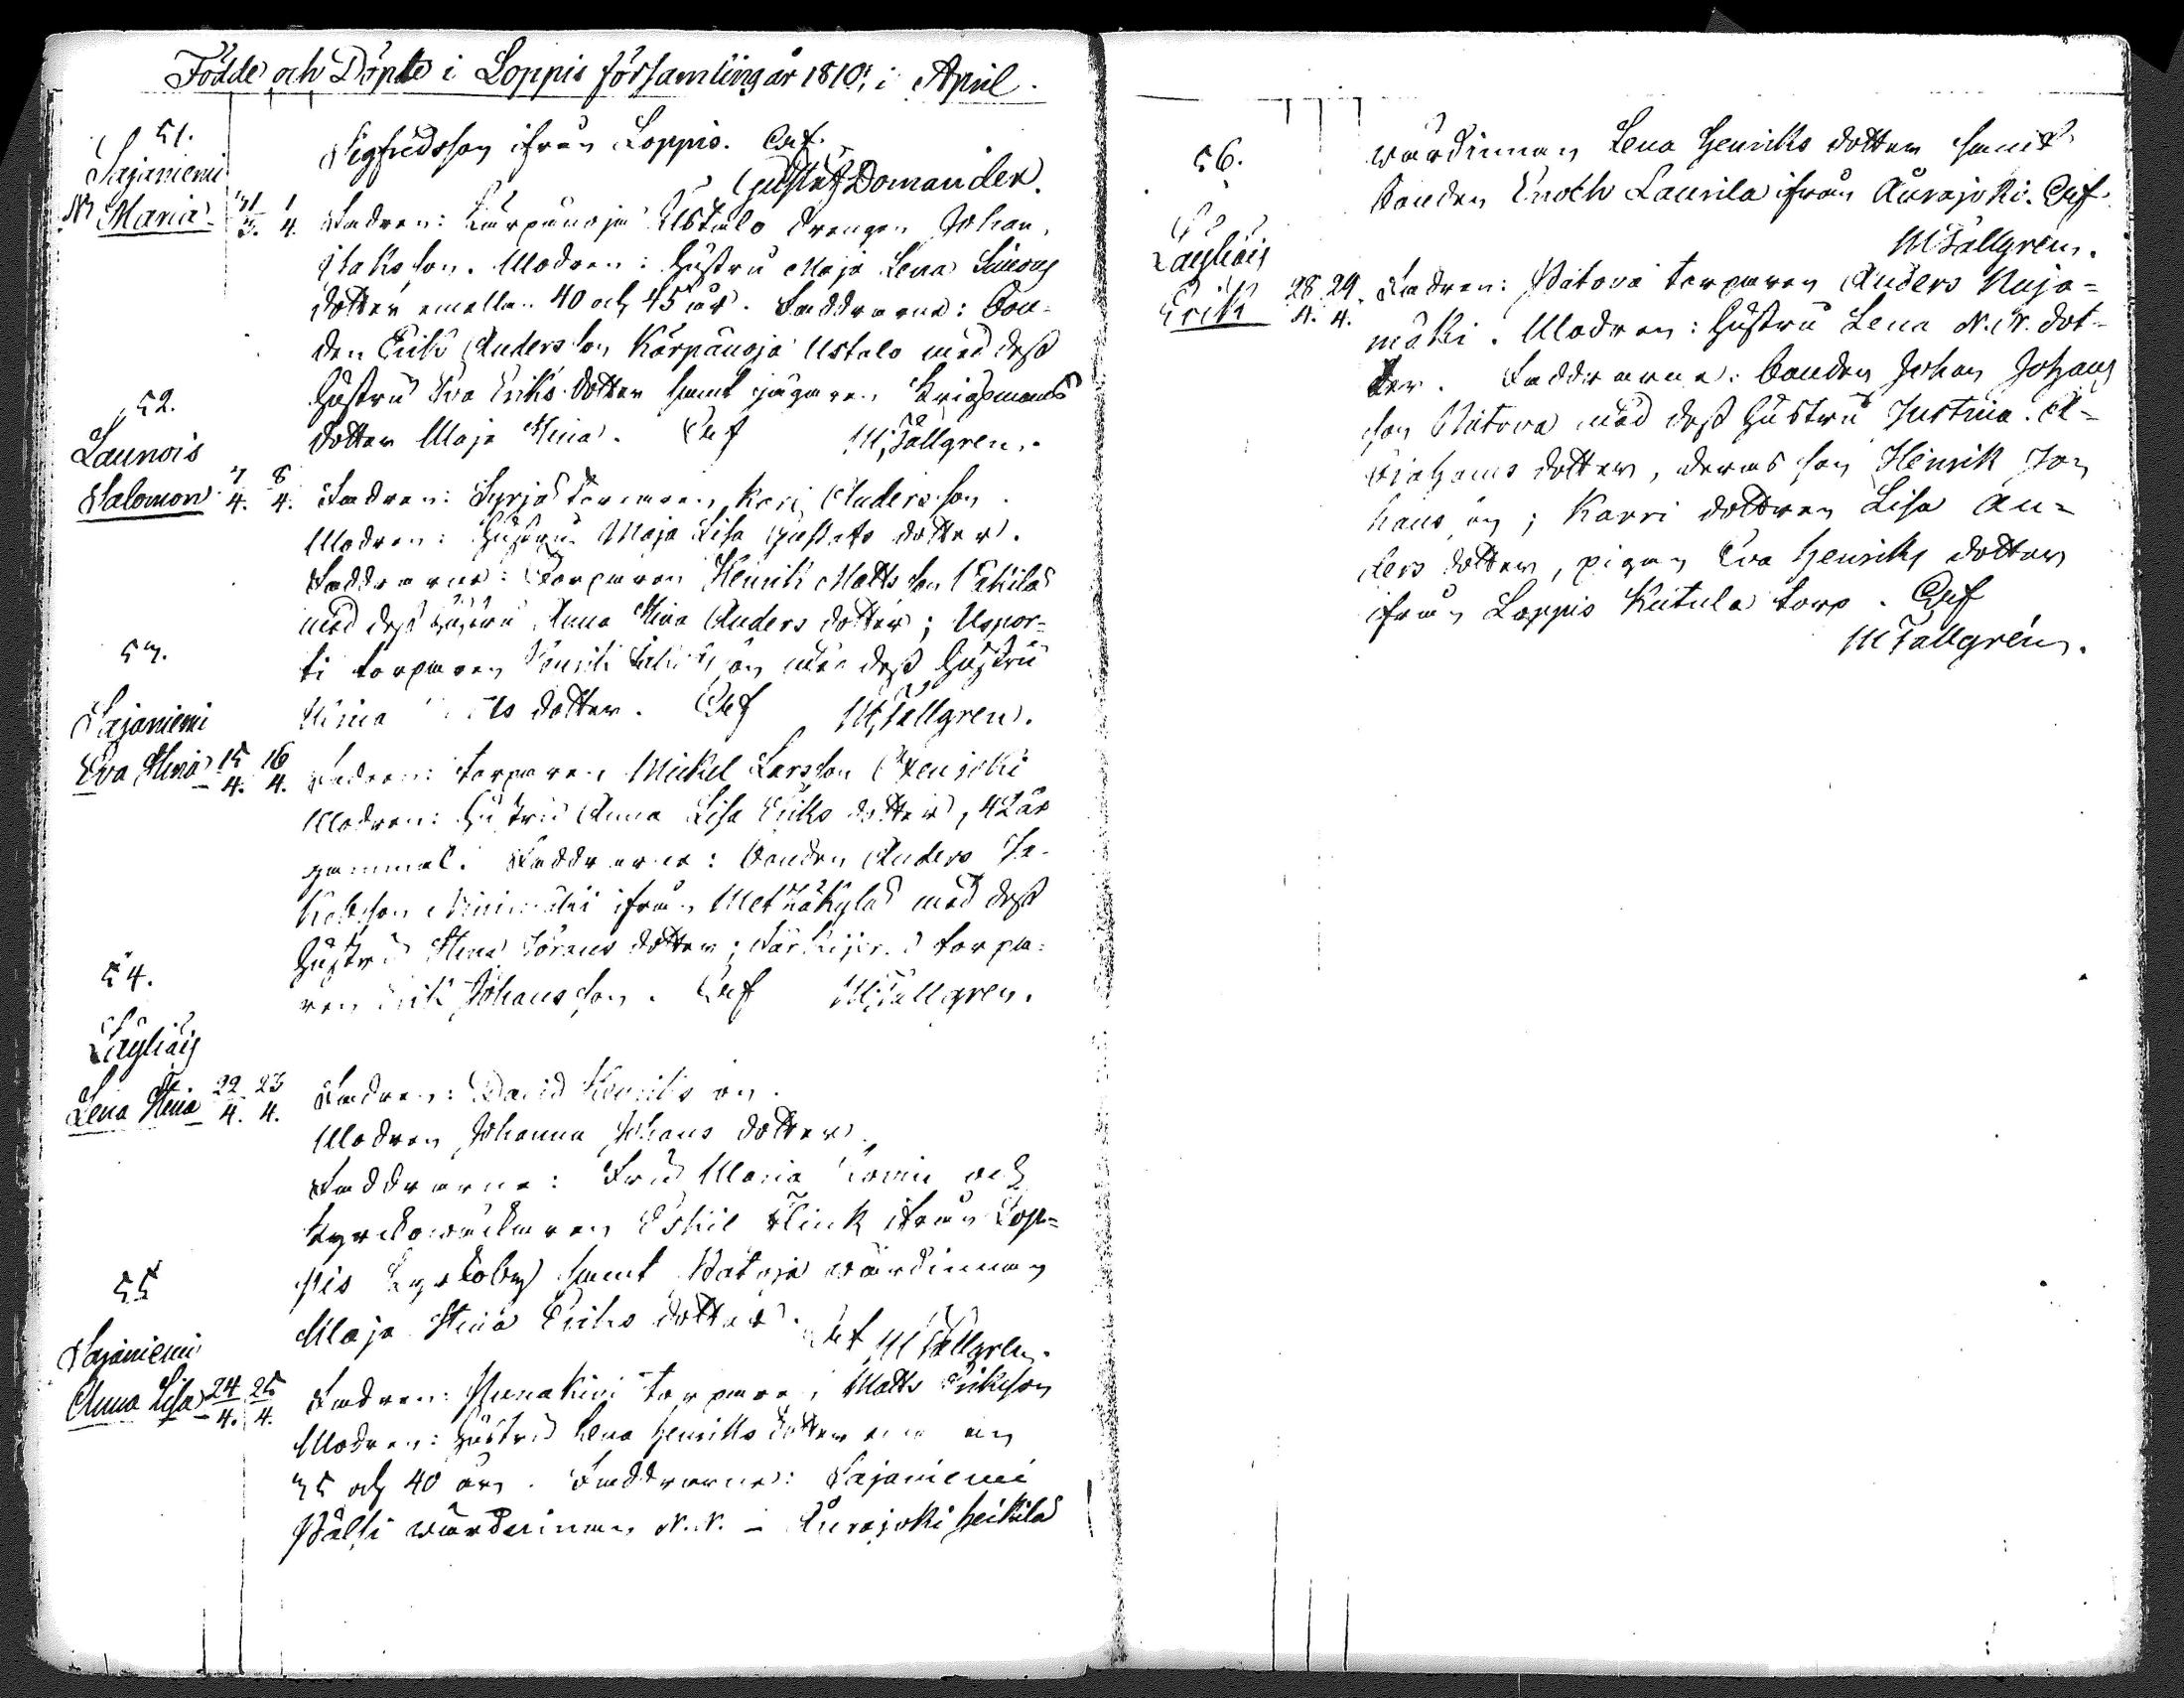 Födde och Döpte i Loppis församling år 1810, i April.
51.
Sajaniemi
Maria 31/3. 1/4.
Sigfridsson ifrån Loppis. Test.
Gustaf Domander.
Fadren: Kärpänoja Ustalo drengen Johan
Isaksson. Modren: Hustru Maja Lena Simons
dotter emellan 40 och 45 år. Faddrarne: Bon-
den Erik Andersson Kärpänoja Ustalo med dess
Hustru Eva Eriks dotter samt
dotter Maja Stina. Test M. Tallgren.
52.
Launois
Salomon 7/4. 8/4.
Fadren: Syrjä torparen Andersson.
Modren: Hustru Maja Lisa Gustafs dotter.
Faddrarne: Torparen Henrik Mattsson
med dess Hustru Anna Stina Anders dotter;
ti torparen med dess Hustru
Stina dotter. Test M. Tallgren.
53.
Sajaniemi
Eva Stina 15/4. 16/4.
Fadren: torparen Mickel Larsson
Modren: Hustru Anna Lisa Eriks dotter, 42 år
gammal. Faddrarne: bonden Anders Ja-
kobsson ifrån Metsäkylä med dess
Hustru Stina Görans dotter; torpa-
ren Erik Johansson. Test M. Tallgren.
54.
Läyliäis
Lena Stina 22/4. 23/4.
Fadren: David Henriksson.
Modren Johanna Johans dotter.
Faddrarne: Fru Maria och
kyrckowäcktaren Eskil Flink ifrån Lop-
pis Kyrkoby samt wärdinnan
Maja Stina Eriks dotter. Test M Tallgren.
55
Sajaniemi
Anna Lisa 24/4. 25/4.
Fadren: Punakivi torparen Matts Eriksson
Modren: Hustru Lena Henriks dotter
35 och 40 år. Faddrarne: Sajaniemi
Pälsi wärdinnan N.N. – Aurajoki Heikilä
wärdinnan Lena Henriks dotter samt
bonden Enoch Laurila ifrån Aurajoki. Test
M Tallgren.
56.
Läyliäis
Erik 28/4. 29/4.
Fadren: torparen Anders
mäki. Modren: Hustru Lena N.N. dot-
ter. Faddrarne: bonden Johan Johans
son med dess Hustru Justina A-
brahams dotter, deras son Henrik Jo-
hansson; Karri dottren Lisa An-
ders dotter, pigan Eva Henriks dotter
ifrån Loppis Kutula torp. Test
M Tallgren.